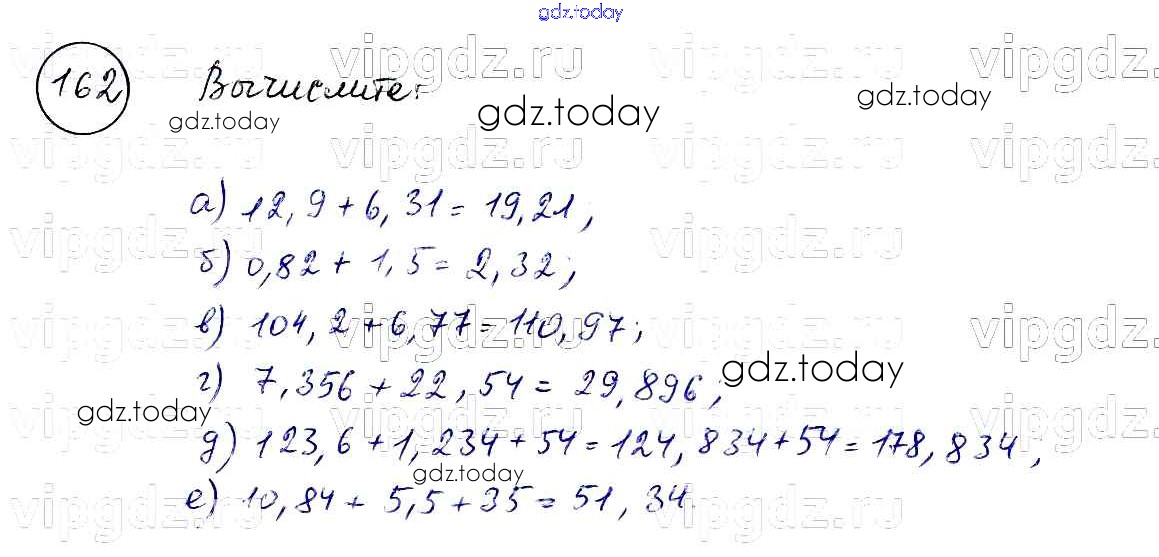 gdz.today
vipgdz.ru vipgdz.ru vipgdz.ru vipgdz.ru
162 Вычислите:
gdz.today gdz.today gdz.today
vipgdz.ru vipgdz.ru vipgdz.ru vipgdz.ru
а) 12,9 + 6,31 = 19,21;
vipgdz.ru vipgdz.ru vipgdz.ru
б) 0,82 + 1,5 = 2,32;
vipgdz.ru vipgdz.ru vipgdz.ru vipgdz.ru
в) 104,2 + 6,77 = 110,97;
gdz.today
г) 7,356 + 22,54 = 29,896;
gdz.today
vipgdz.ru vipgdz.ru vipgdz.ru vipgdz.ru
д) 123,6 + 1,234 + 54 = 124,834 + 54 = 178,834;
gdz.today
е) 10,84 + 5,5 + 35 = 51,34.
vipgdz.ru vipgdz.ru vipgdz.ru